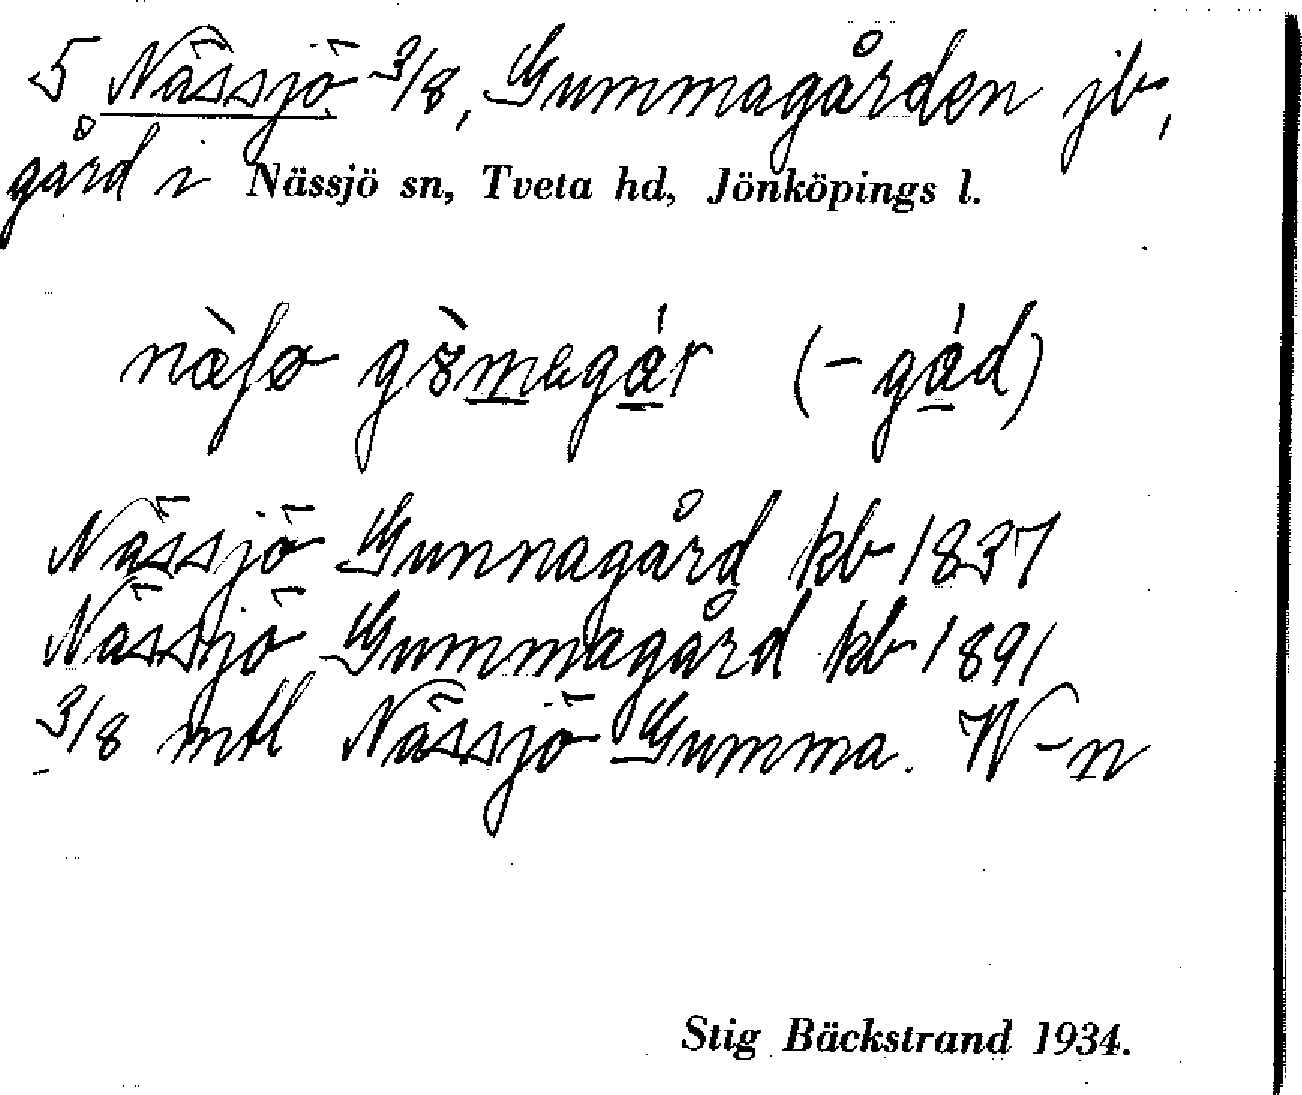 5 Nässjö 3/8, Gummagården jb,
gård i Nässjö sn, Tveta hd, Jönköpings l.
Nässjö Gunnagård kb 1837
Nässjö Gummagård kb 1891
3/8 mtl Nässjö Gumma. W-n
Stig Bäckstrand 1934.